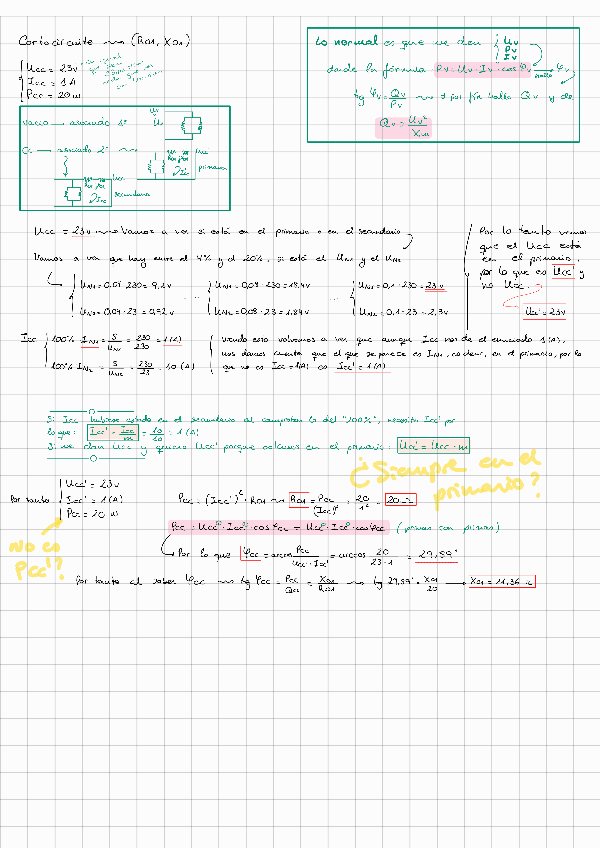 Cortocircuito ⟿ (R01, X01)
Ucc = 23v
Icc = 1A
Pcc = 20w
Lo normal es que me den
Uv
Pv
Iv
donde la fórmula Pv = Uv · Iv · cos φv → φv
halla
tg φv = Qv/Pv ⟿ y por fin hallo Qv y de
Qv = Uv²/Xm
Vacío → asociado 1º
Cc → asociado 2º
Ucc
primario
Ucc
Icc
secundario
Ucc = 23v ⟿ Vamos a ver si está en el primario o en el secundario
Vamos a ver que hay entre el 4% y el 20%, si está el UN1 y el UN2
UN1 = 0,04 · 230 = 9,2v ... UN1 = 0,08 · 230 = 18,4v ... UN1 = 0,1 · 230 = 23v
UN2 = 0,04 · 23 = 0,92v UN2 = 0,08 · 23 = 1,84v UN2 = 0,1 · 23 = 2,3v
Por lo tanto vemos
que el Ucc está
en el primario,
por lo que es Ucc' y
no Ucc.
Ucc' = 23v
Icc 100% IN1 = S/UN1 = 230/230 = 1(A)
100% IN2 = S/UN2 = 230/23 = 10(A)
viendo esto volvemos a ver que aunque Icc nos de el enunciado 1(A),
nos damos cuenta que el que se parece es IN1, es decir, en el primario, por lo
que no es Icc = 1(A) es Icc' = 1(A)
Si Icc hubiese estado en el secundario al comprobar lo del "100%", necesito Icc' por
lo que: Icc' = Icc/m = 10/10 = 1(A)
Si me dan Ucc y quiero Ucc' porque estamos en el primario: Ucc' = Ucc · m
¿Siempre en el
primario?
Por tanto
Ucc' = 23v
Icc' = 1(A)
Pcc = 20w
No es
Pcc'?
Pcc = (Icc')² · R01 ⟿ R01 = Pcc/(Icc')² = 20/1² = 20Ω
Pcc = Ucc' · Icc' · cos φcc = Ucc · Icc · cos φcc (primas con primas)
Por lo que φcc = arccos Pcc/(Ucc' · Icc') = arccos 20/(23·1) = 29,59°
Por tanto al saber φcc ⟿ tg φcc = Pcc/Qcc = X01/R01 ⟿ tg 29,59° = X01/20 → X01 = 11,36Ω